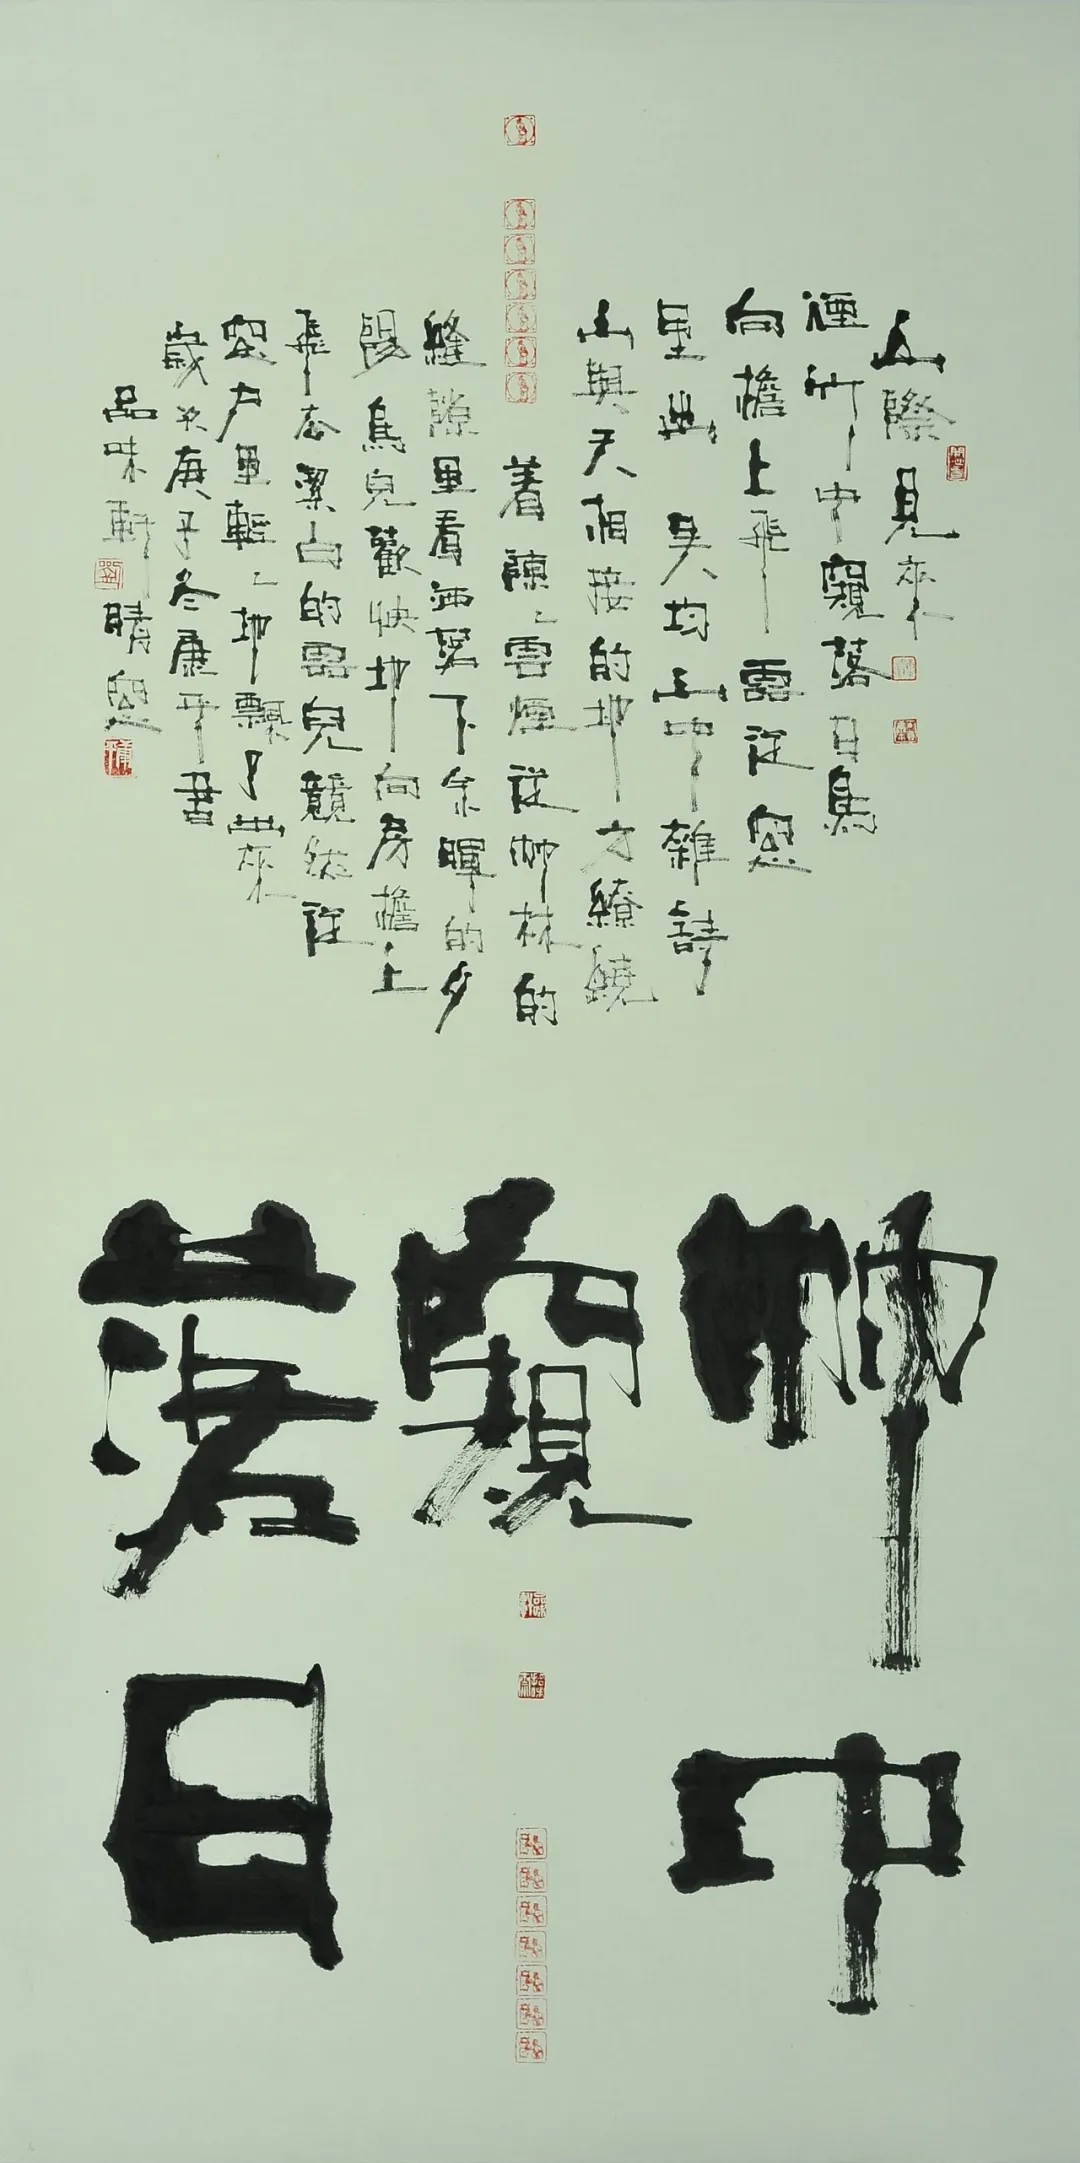 山際見來
煙竹中窺落日鳥
向檐上飛雲從窗
里出 吴均山中雜詩
山與天相接的地方繚繞
着陣〻雲煙從竹林的
縫隙里看洒落下余暉的夕
陽鳥兒歡快地向房檐上
飛去潔白的雲兒竟然從
窗户里輕〻地飄了出來
歲次庚子冬康平書
品味軒晴窗
竹中
窺
落日